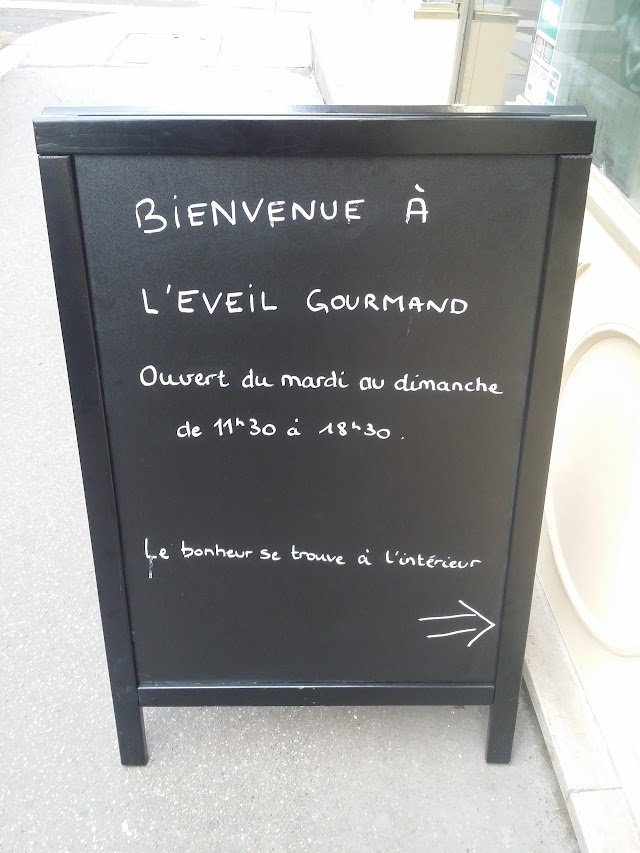 BiENVENUE À
L'EVEiL GOURMAND
Ouvert du mardi au dimanche
de 11h30 à 18h30.
Le bonheur se trouve à l'intérieur